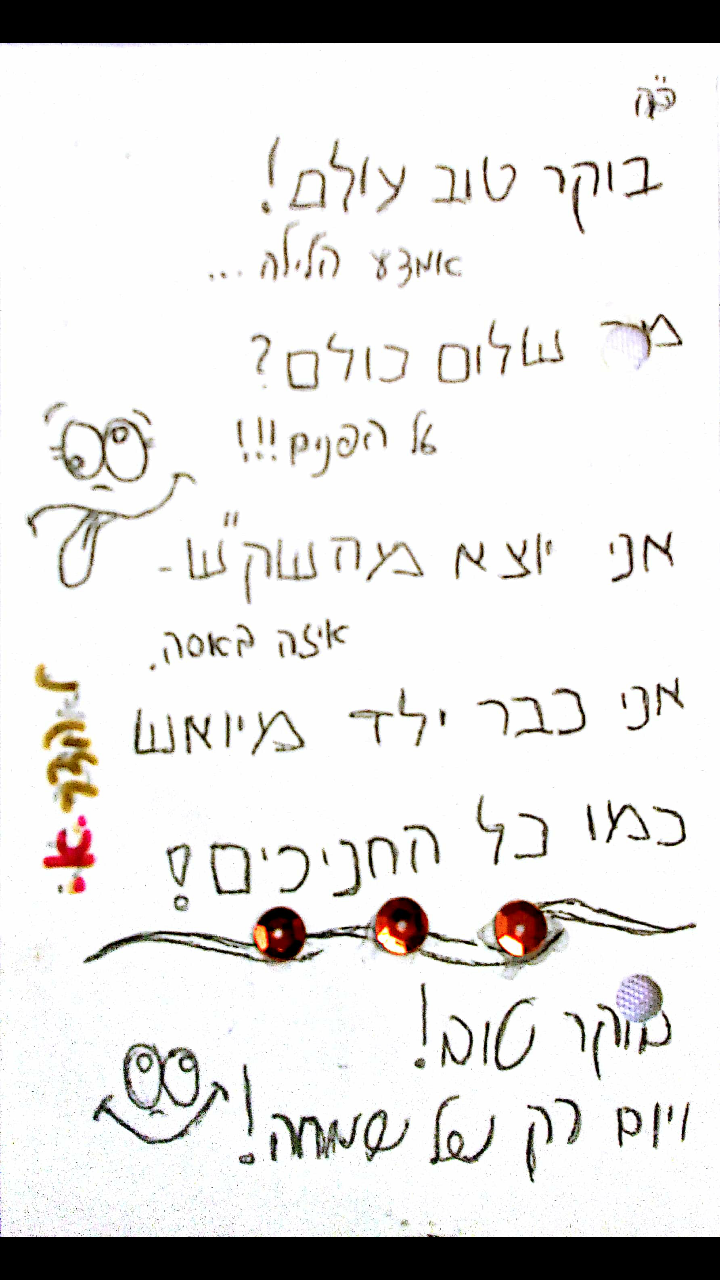 ב"ה
בוקר טוב עולם!
אמצע הלילה ...
מה שלום כולם?
על הפנים!!!
אני יוצא מהשק"ש -
איזה באסה.
אני כבר ילד מיואש
כמו כל החניכים!
בוקר טוב!
ויום רק של שמחה!